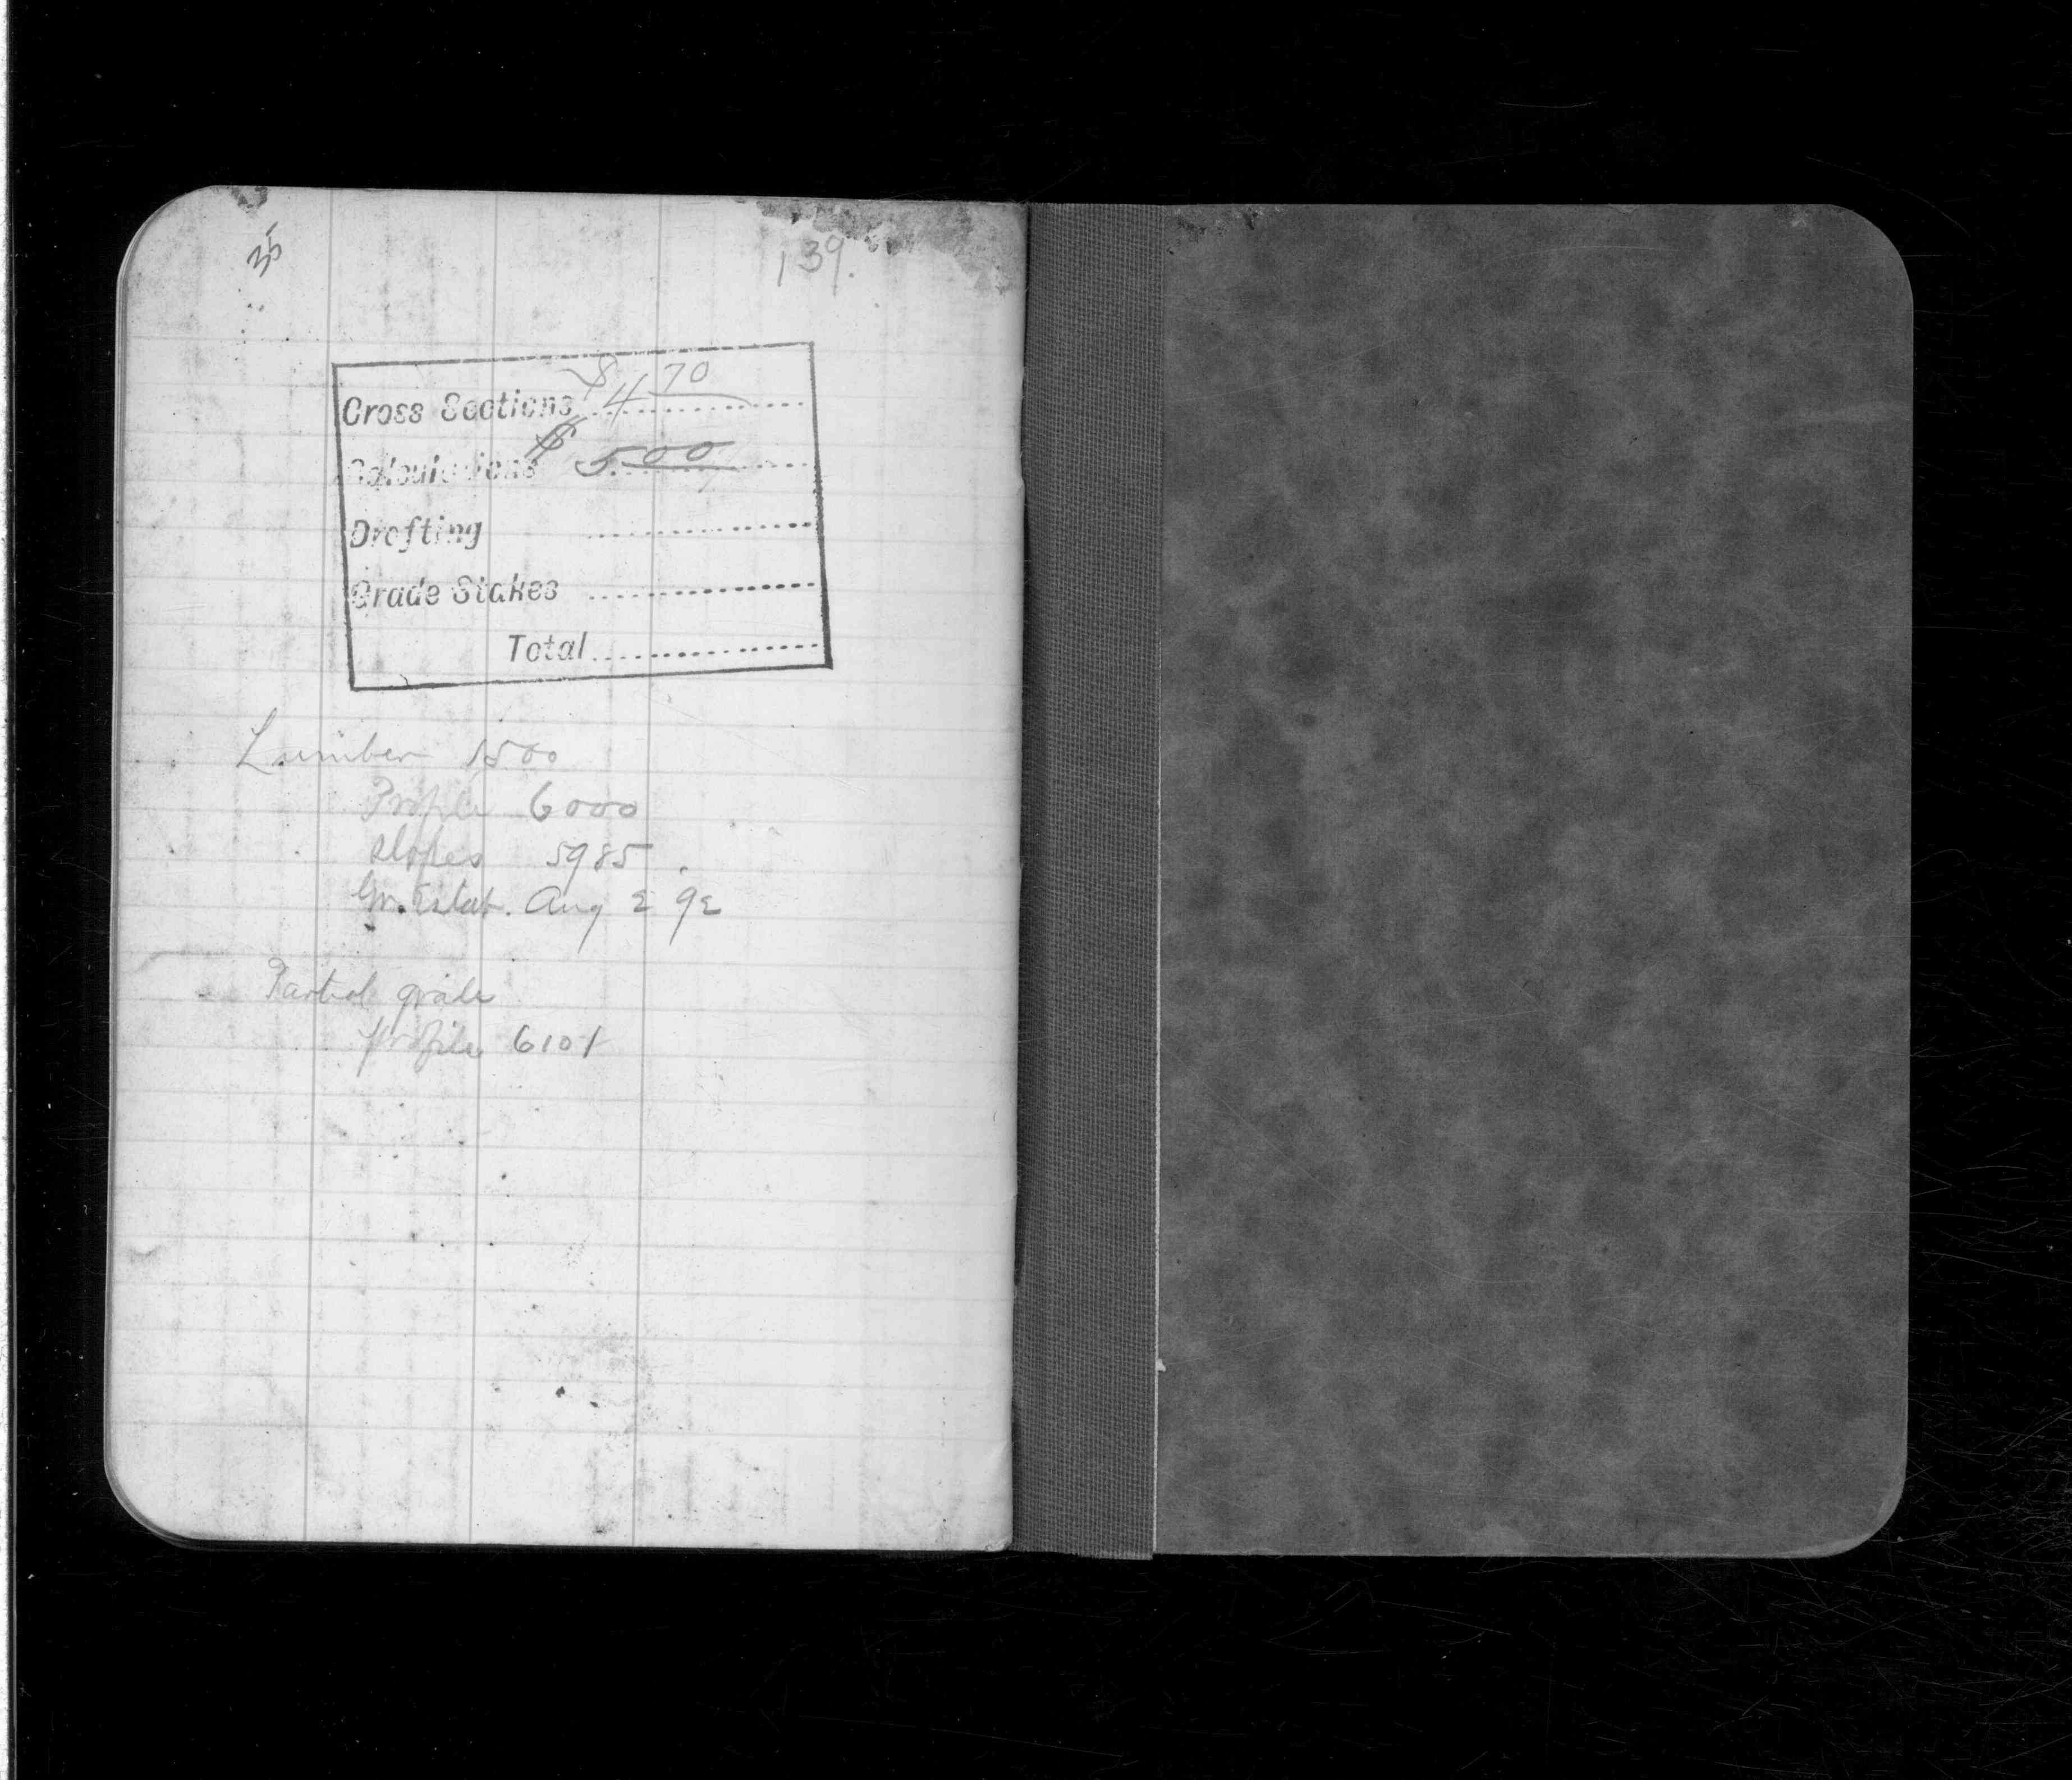 35
139.
Cross Sections $4 70
Calculations $ 5.00
Drafting
Grade Stakes
Total
Lumber 1500
Profile 6000
slopes 5985.
Gr. Estab. Aug 2 92
Partial grade
profile 6101